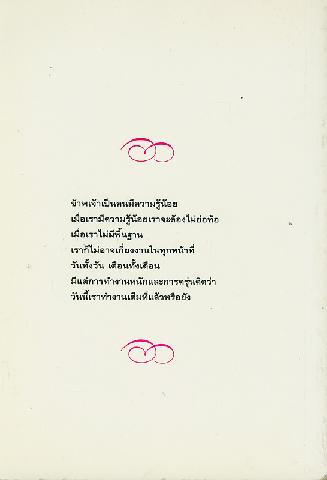 ข้าพเจ้าเป็นคนมีความรู้น้อย
เมื่อเรามีความรู้น้อยเราจะต้องไม่ย่อท้อ
เมื่อเราไม่มีพื้นฐาน
เราก็ไม่อาจเกี่ยงงานในทุกหน้าที่
วันทั้งวัน เดือนทั้งเดือน
มีแต่การทำงานหนักและการครุ่นคิดว่า
วันนี้เราทำงานเต็มที่แล้วหรือยัง